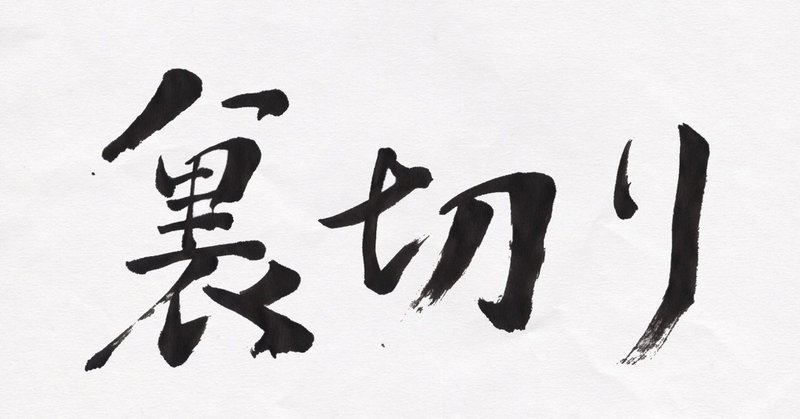 裏切り